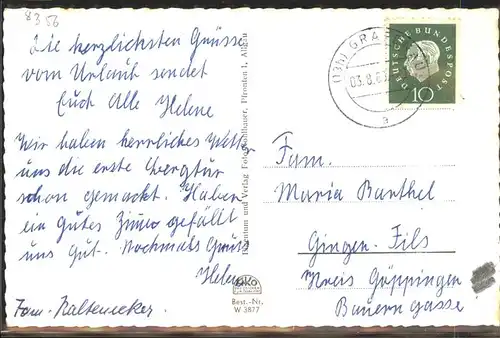 8356
Die herzlichsten Grüsse
vom Urlaub sendet
Euch Alle Helene
Wir haben herrliches Wetter
uns die erste Bergtur
schon gemacht. Haben
ein gutes Zimer gefällt
uns gut. Nochmals Gruss
Helene
Fam. Kaltenecker.
und Verlag Foto Kohlbauer, Pfronten 1, Allgäu
ÖKO
Best.-Nr.
W 3877
(13b) GRA
03.8.6
a
DEUTSCHE BUNDESPOST
10
Fam.
Maria Barthel
Gingen-Fils
Kreis Göppingen
Bauerngasse